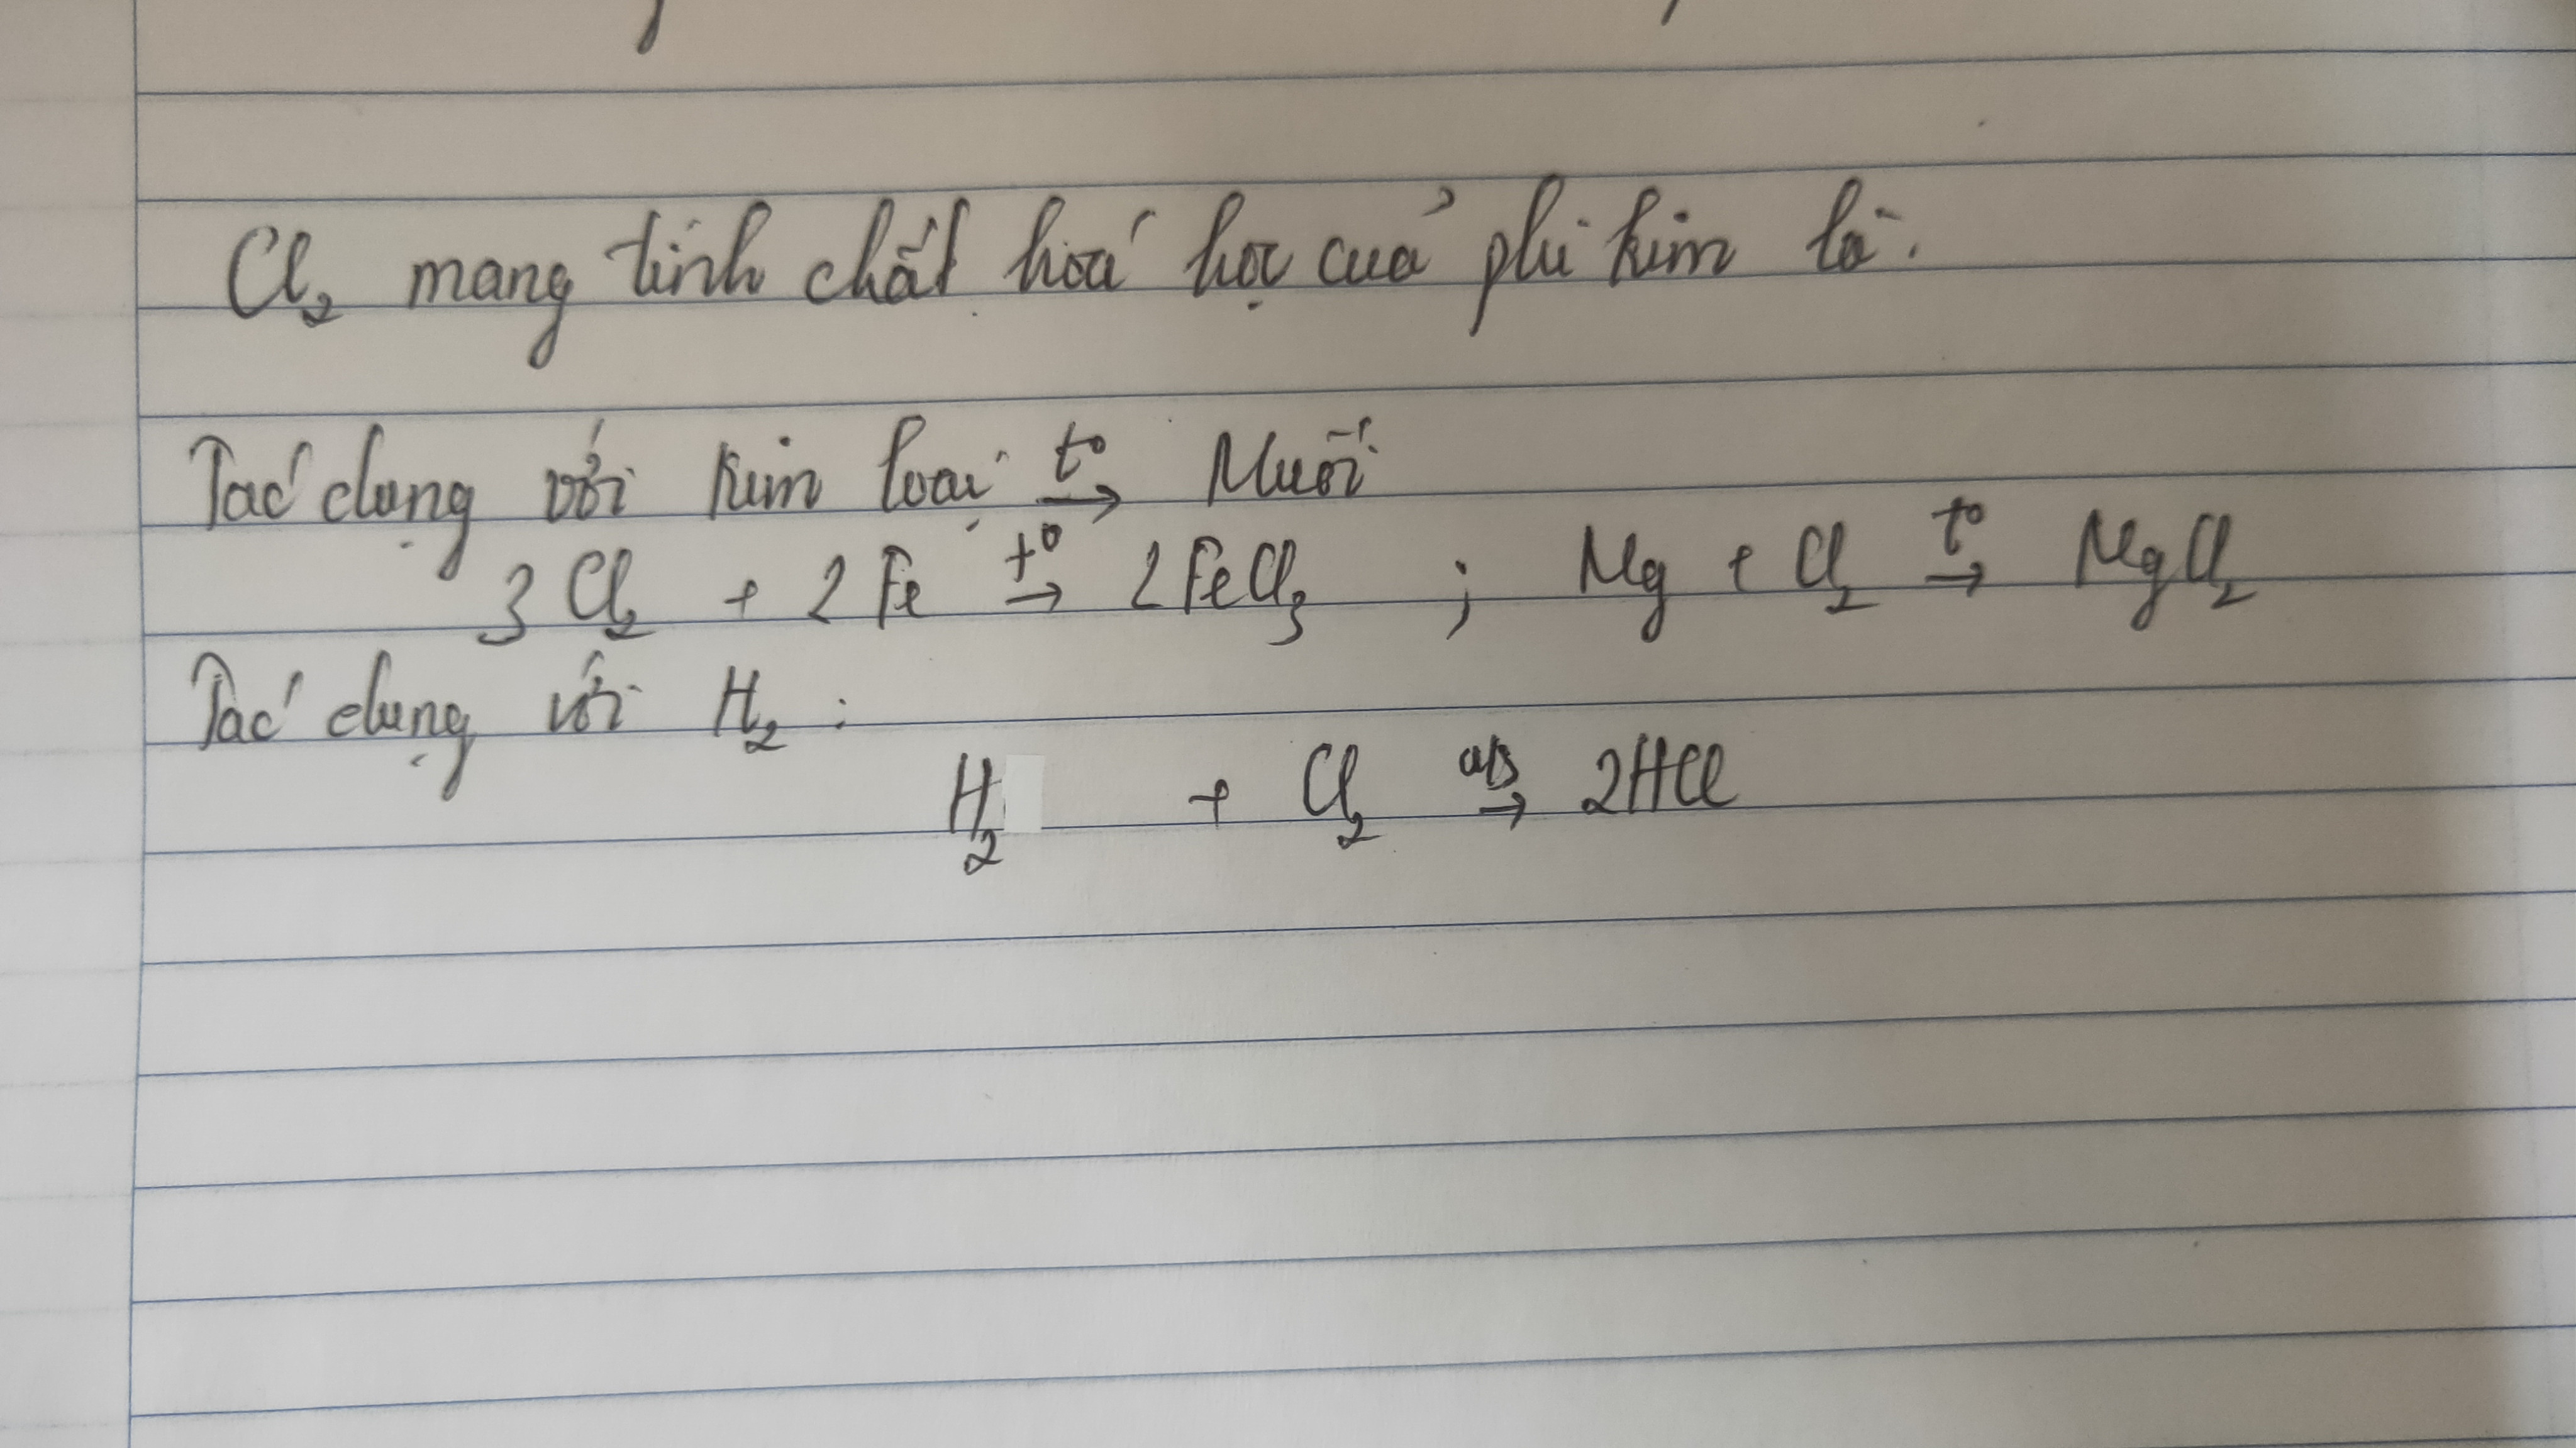 Cl₂ mang tính chất hoá học của phi kim là.
Tác dụng với kim loại t° → Muối
3 Cl₂ + 2 Fe t° → 2 FeCl₃ ; Mg + Cl₂ t° → MgCl₂
Tác dụng với H₂ :
H₂ + Cl₂ a/s → 2HCl